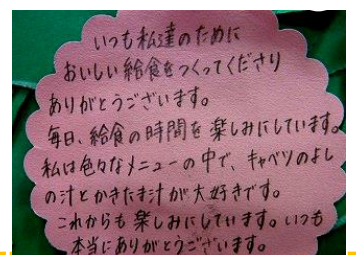 いつも私達のために
おいしい給食をつくってくださり
ありがとうございます。
毎日、給食の時間を楽しみにしています。
私は色々なメニューの中で、キャベツのよし
の汁とかきたま汁が大好きです。
これからも楽しみにしています。いつも
本当にありがとうございます。